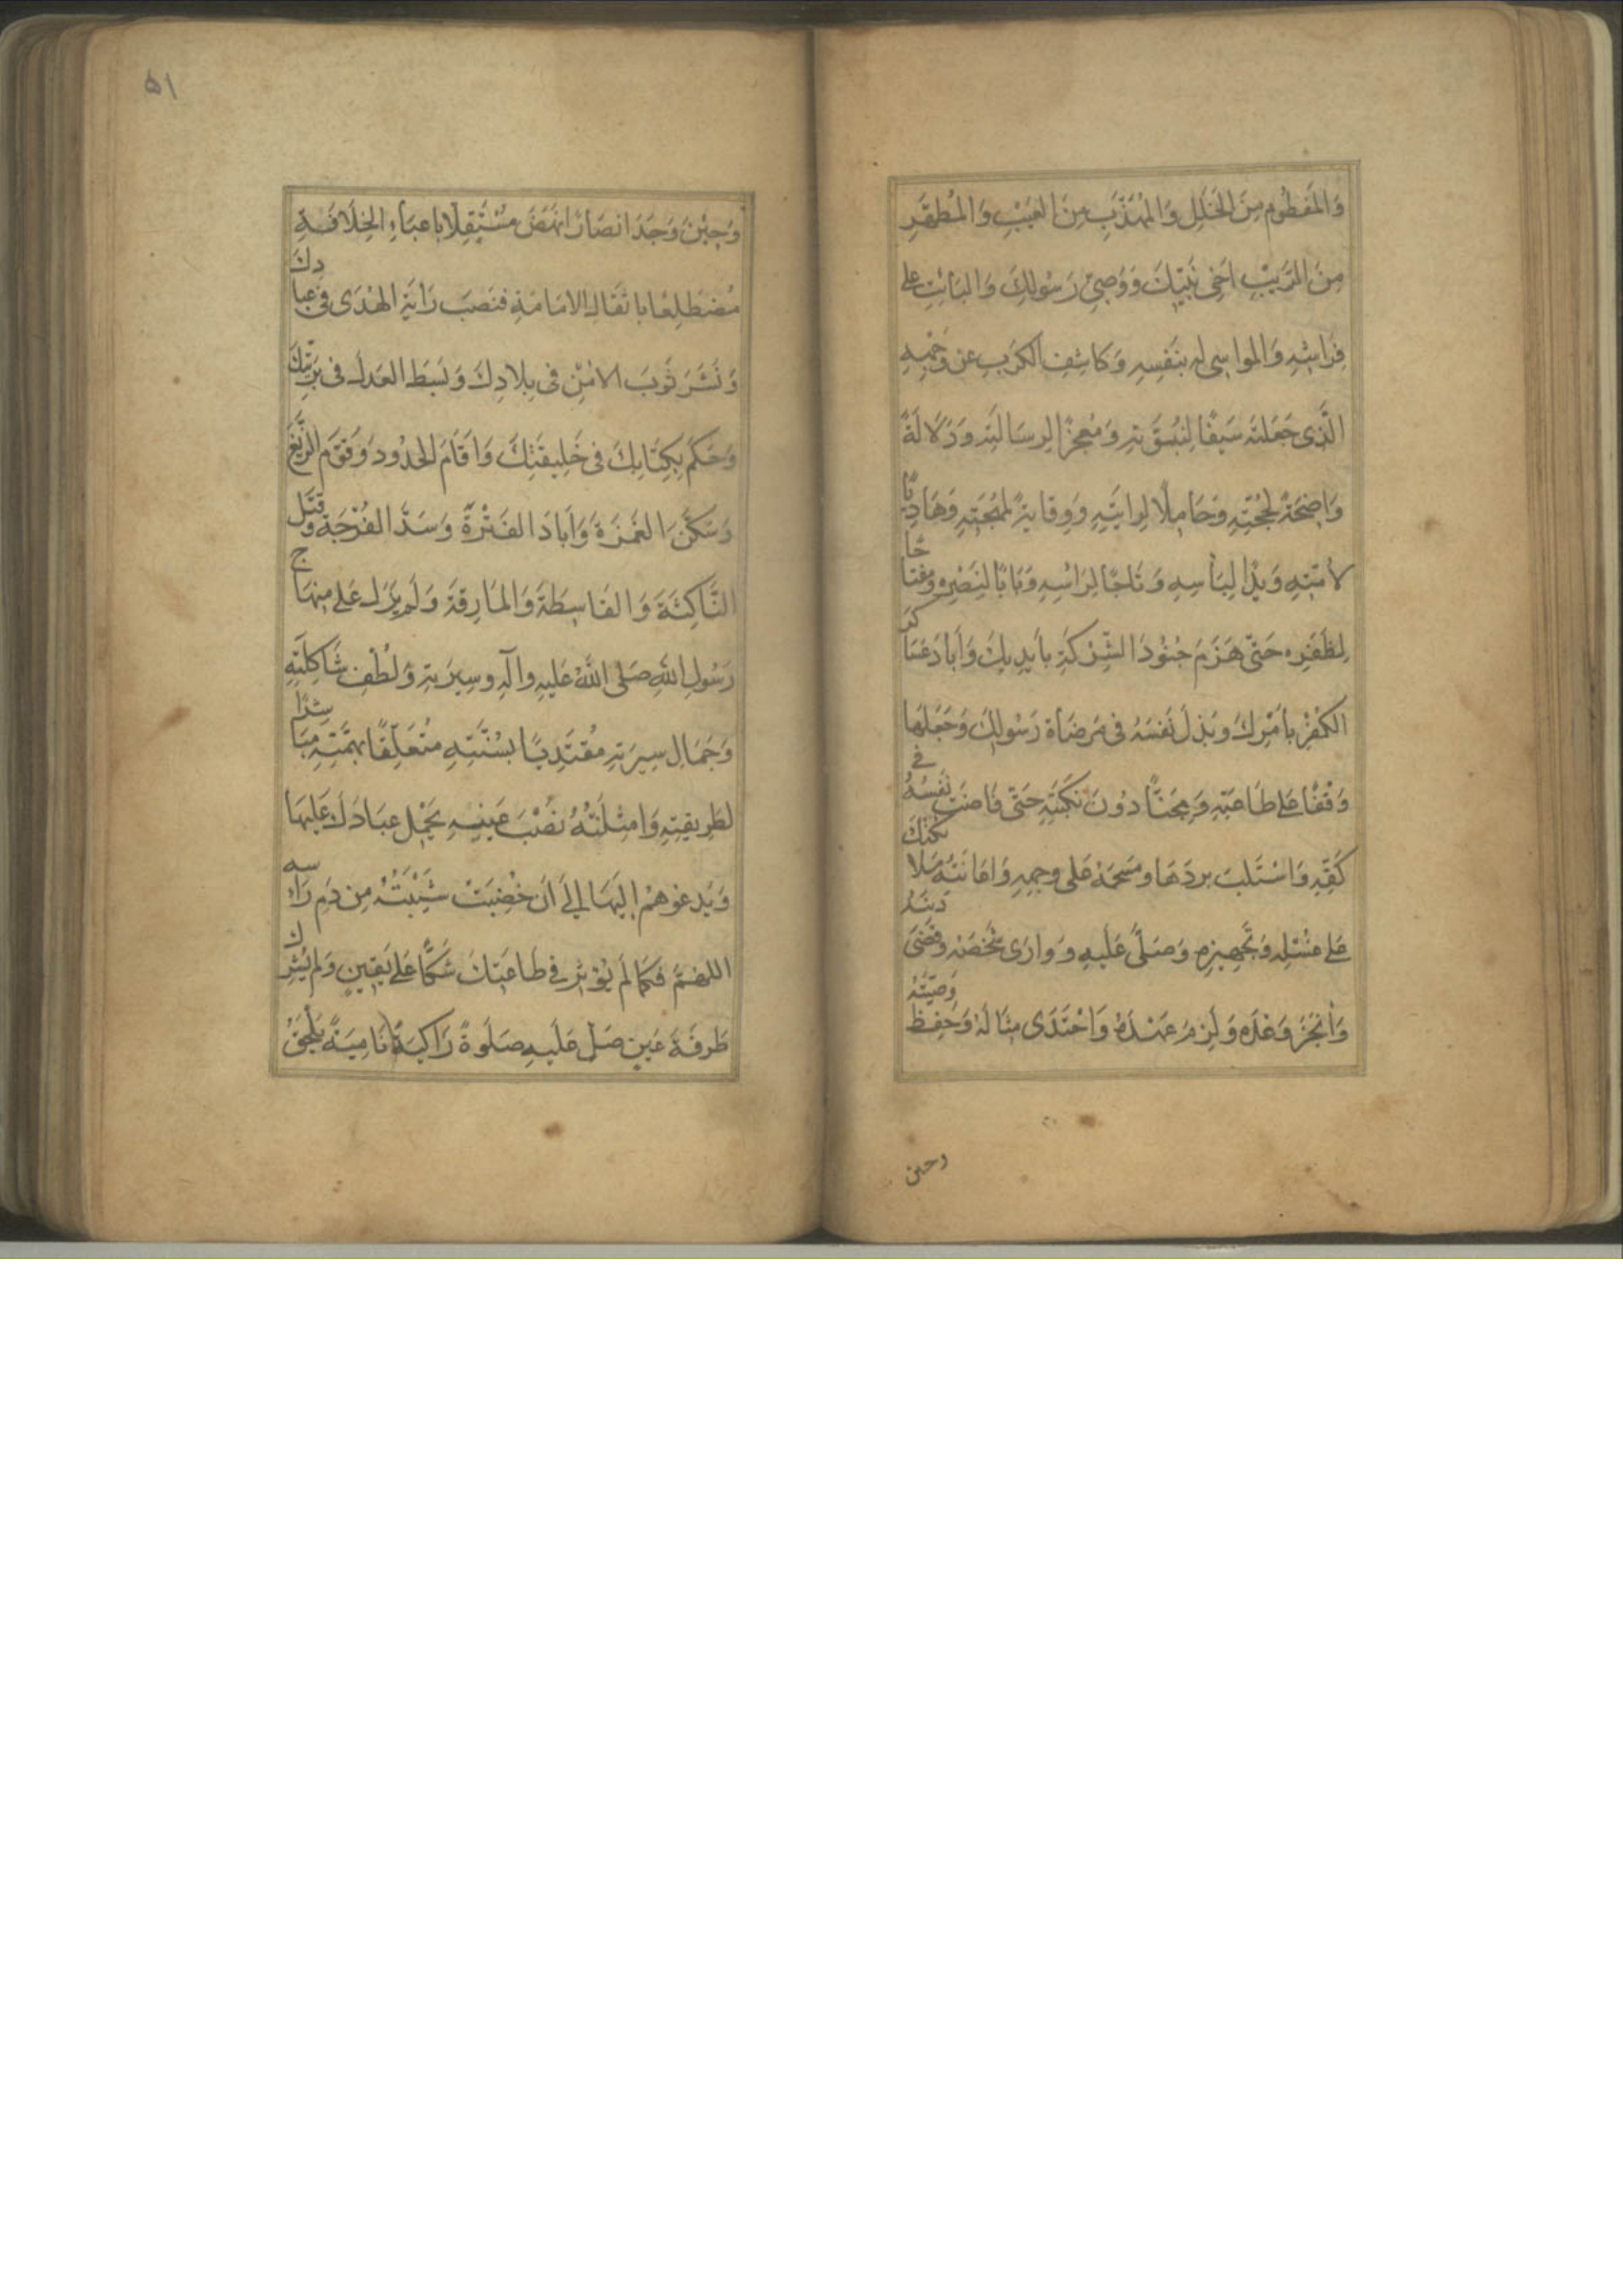 وَالمَفطُومِ مِنَ الخَلَلِ وَالمُهَذَّبِ مِنَ العَيْبِ وَالمُطَهَّرِ
مِنَ الرَّيبِ اَخِى نَبِيِّكَ وَوَصِىِّ رَسُولِكَ وَالبَائِتِ على
فِرَاشِهِ وَالمواسِى لَه بِنَفسِهِ وَكاشِفِ الكَرَبِ عَن وَجهِهِ
الَّذى جَعَلتَه سَيفًا لِنُبُوَّتِهِ وَمُعجِزًا لِرِسَالَتِه وَدَلَالَةً
وَاضِحَةً لِحُجَّتِهِ وَحَامِلًا لِرايَتِهِ وَوِقايَةً لِمُهجَتِهِ وَهَادِيًا
لأمَّتِهِ وَيَدًا لِبَأسِهِ وَتَاجًا لِرَاسِهِ وَبَابًا لِنَصْرِهِ وَمِفتَاحًا
لِظَفَرِه حَتّى هَزَمَ جُنُودَ الشِّركِ بأَيدِيكَ وَأبَادَ عَسَاكِرَ
الكُفرِ بأَمرِكَ وَبَذلَ نَفسَهُ فى مَرضَاةِ رَسُولِكَ وَجَعَلَها
وَقفًا عَلى طَاعَتِهِ وَمِجَنًّا دُونَ نَكبَتِهِ حَتّى فَاضَت نَفسُهُ فى
كَفِّهِ وَاسْتَلَبَ بردَهَا ومَسَحَهُ عَلى وجهِهِ وَاعَانَتهُ مَلائكَتُكَ
عَلى غُسْلِه وَتَجهِيزِهِ وَصَلّى عَلَيهِ وَوارَى شَخصَه وَقَضَى دَينَهُ
وَأنجَزَ وَعْدَه وَلَزِمَ عَهْدَهُ وَاحْتَذَى مِثَالَهُ وَحَفِظَ وَصِيَّتَهُ
وحين
٥١
وَحِيْنَ وَجَدَ انصَارًا نَهَضَ مُسْتَقِلًّا باعبَاءِ الخِلَافَةِ
مُضطَلِعًا باثقَالِ الامَامَةِ فنَصَبَ رَايَةَ الهُدَى فى عِبادِكَ
وَنَشَرَ ثَوبَ الامْنِ فى بِلادِكَ وَبَسَطَ العَدلَ فى بَرِيَّتِكَ
وَحَكَمَ بِكِتَابِكَ فى خَلِيقَتِكَ وَاَقَامَ الحُدُودَ وَقَوَّمَ الزَّيغَ
وَسَكَّنَ الغَمرَةَ وَاَبادَ الفَتْرَةَ وَسَدَّ الفُرْجَةَ وقَتَلَ
النَّاكِثَةَ وَالقَاسِطَةَ وَالمَارِقَةَ وَلَم يَزَل عَلى مِنهَاج
رَسُولِ اللّهِ صَلى اللّهُ عَليهِ وآلهِ وسِيرَتِهِ وَلُطْفِ شَاكِلَتِهِ
وَجَمَالِ سِيرَتِهِ مُقتَدِيًا بسُنَّتِهِ متعَلِّقًا بهِمَّتِهِ مبَاشرًا
لِطَرِيقَتِهِ وَامثِلَتُهُ نَصْبَ عَينيهِ يَحمِل عبَادَكَ عَلَيهَا
وَيَدعُوهُمْ اِلَيهَا اِلى أَن خُضِبَتْ شَيْبَتُهُ مِن دَمِ رَاسه
اللهُمَّ فَكَمَا لَم يُؤثِر فى طاعَتِكَ شَكًّا عَلى يَقِينٍ وَلم يُشرِك
طَرفَةَ عَينٍ صَلِّ عَلَيهِ صَلَوةً زَاكِيَةً نَامِيَةً يَلحَقُ